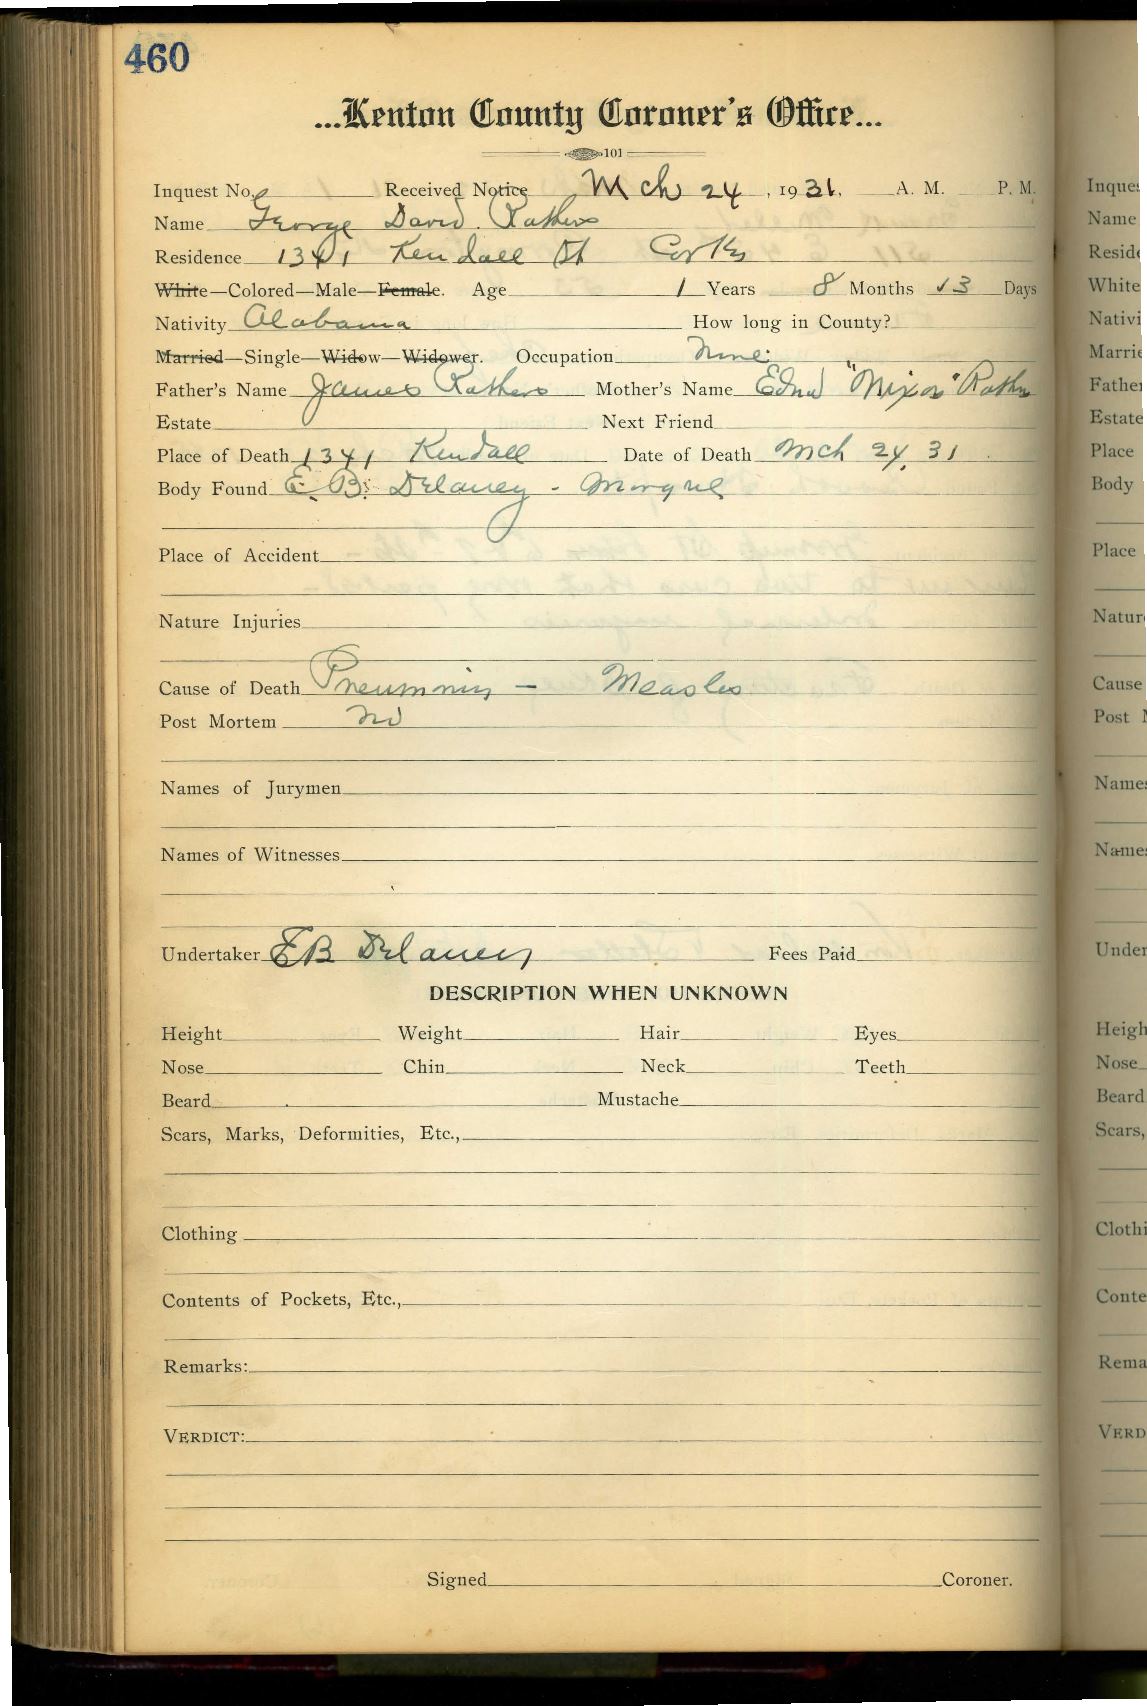 460
...Kenton County Coroner's Office...
101
Inquest No. Received Notice Mch 24, 1931. A. M. P. M.
Name George David Rathers
Residence 1341 Kendall St Cov Ky
White—Colored—Male—Female. Age 1 Years 8 Months 13 Days
Nativity Alabama How long in County?
Married—Single—Widow—Widower. Occupation None
Father's Name James Rathers Mother's Name Edna "Nixon" Rathers
Estate Next Friend
Place of Death 1341 Kendall Date of Death Mch 24, 31
Body Found E. B. Delaney - Morgue
Place of Accident
Nature Injuries
Cause of Death Pneumonia — Measles
Post Mortem No
Names of Jurymen
Names of Witnesses
Undertaker EB Delaney Fees Paid
DESCRIPTION WHEN UNKNOWN
Height Weight Hair Eyes
Nose Chin Neck Teeth
Beard Mustache
Scars, Marks, Deformities, Etc.,
Clothing
Contents of Pockets, Etc.,
Remarks:
VERDICT:
Signed Coroner.
Inques
Name
Reside
White
Nativi
Marrie
Father
Estate
Place
Body
Place
Natur
Cause
Post
Names
Names
Under
Heigh
Nose
Beard
Scars,
Clothi
Conte
Rema
VERD